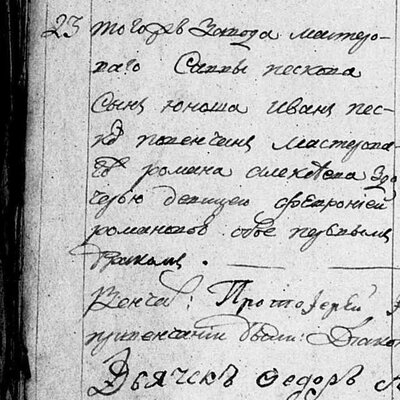 23 тогожъ завода мастеро-
ваго Саввы пескова
Сынъ юноша Иванъ пес-
ковъ повенчанъ мастерова-
го романа алексѣева здо
черью девицею февронiей
романовой обое первымъ
бракомъ.
Венчалъ: Протоiерей
привенчанiи были: Диакон
Дьячекъ Федоръ